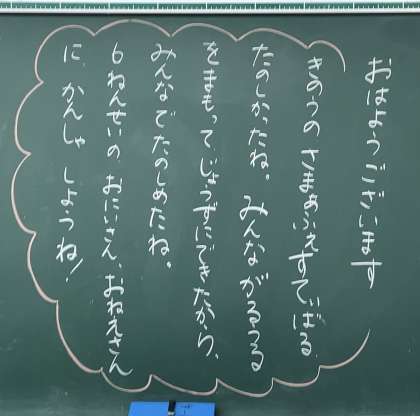 おはようございます
きのうの さまあふぇすてぃばる
たのしかったね。みんながるうる
をまもって、じょうずにできたから、
みんなでたのしめたね。
6ねんせいの おにいさん、おねえさん
に、かんしゃ しようね!